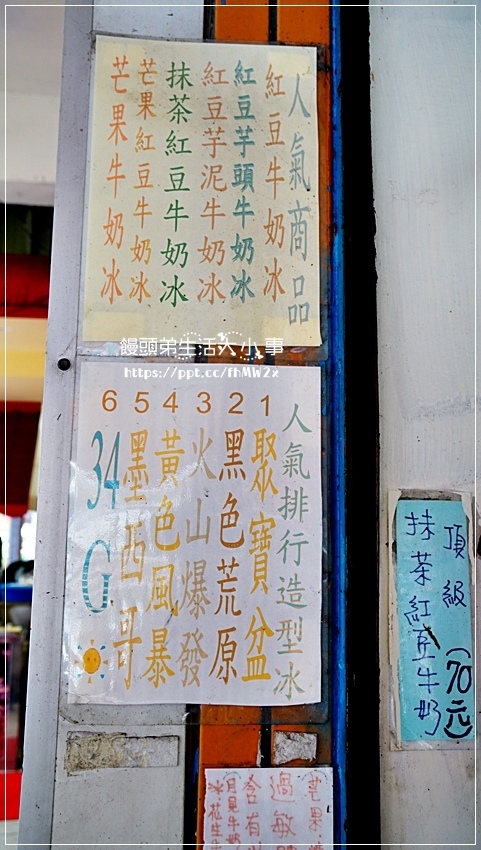 人氣商品
紅豆牛奶冰
紅豆芋頭牛奶冰
紅豆芋泥牛奶冰
抹茶紅豆牛奶冰
芒果紅豆牛奶冰
芒果牛奶冰
饅頭弟生活大小事
https://ppt.cc/fhMW2x
人氣排行造型冰
1聚寶盆
2黑色荒原
3火山爆發
4黃色風暴
5墨西哥
6 34G
頂級(70元)
抹茶紅豆牛奶
芒果
過敏
含有
月見牛奶
冰花生